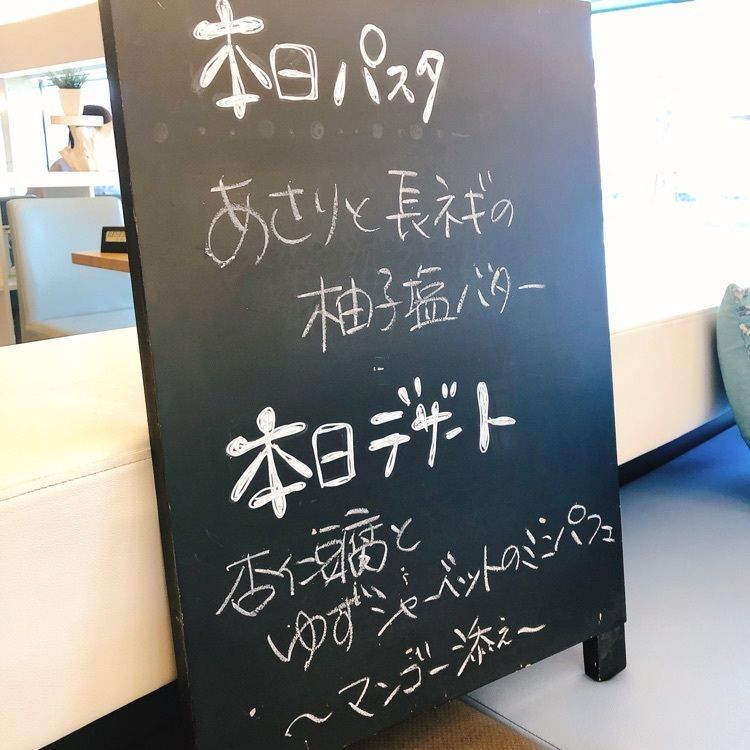 本日パスタ
あさりと長ネギの
柚子塩バター
本日デザート
杏仁豆腐と
ゆずシャーベットのミニパフェ
～マンゴー添え～